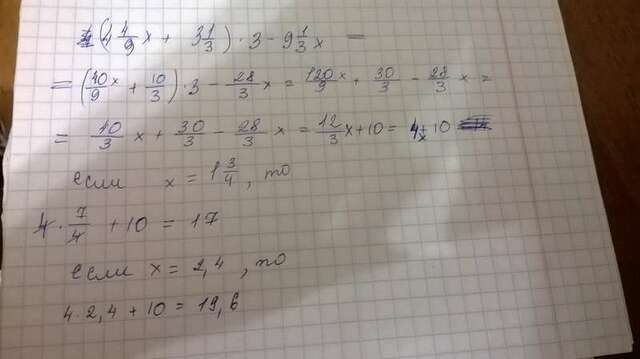 (4 4/9 x + 3 1/3) · 3 - 9 1/3 x =
= (40/9 x + 10/3) · 3 - 28/3 x = 120/9 x + 30/3 - 28/3 x =
= 40/3 x + 30/3 - 28/3 x = 12/3 x + 10 = 4x + 10
если x = 1 3/4, то
4 · 7/4 + 10 = 17
если x = 2,4, то
4 · 2,4 + 10 = 19,6